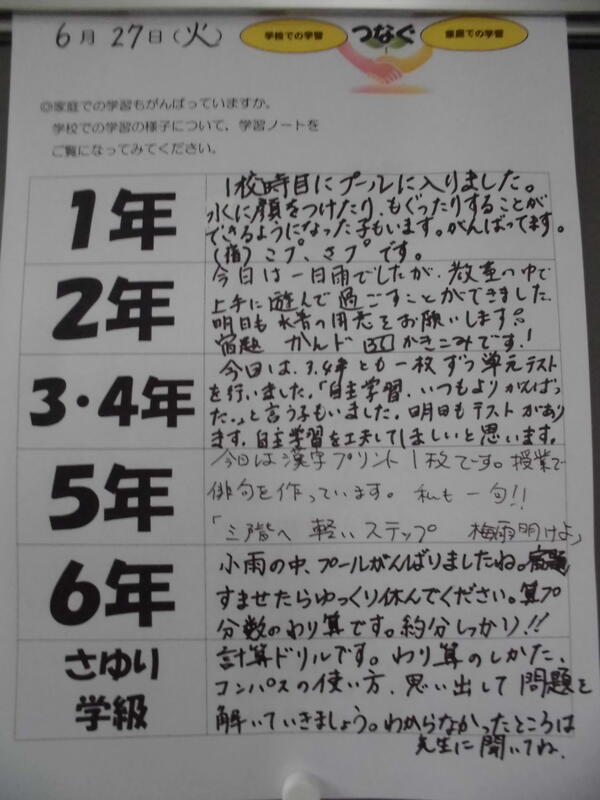 6月 27日（火）
学校での学習 つなぐ 家庭での学習
◎家庭での学習もがんばっていますか。
学校での学習の様子について，学習ノートを
ご覧になってみてください。
1年
1校時目にプールに入りました。
水に顔をつけたり、もぐったりすることが
できるようになった子もいます。がんばってます。
（宿）こプ、さプです。
2年
今日は一日雨でしたが、教室の中で
上手に遊んで過ごすことができました。
明日も水着の用意をお願いします。
宿題 かんド かきこみです！
3・4年
今日は、3.4年とも一枚ずつ単元テスト
を行いました。「自主学習、いつもよりがんばっ
た。」と言う子もいました。明日もテストがあり
ます。自主学習を工夫してほしいと思います。
5年
今日は漢字プリント1枚です。授業で
俳句を作っています。 私も一句!!
「三階へ 軽いステップ 梅雨明けよ」
6年
小雨の中、プールがんばりましたね。宿題
すませたらゆっくり休んでください。算プ
分数のわり算です。約分しっかり!!
さゆり
学級
計算ドリルです。わり算のしかた、
コンパスの使い方、思い出して問題を
解いていきましょう。わからなかったところは
先生に聞いてね。